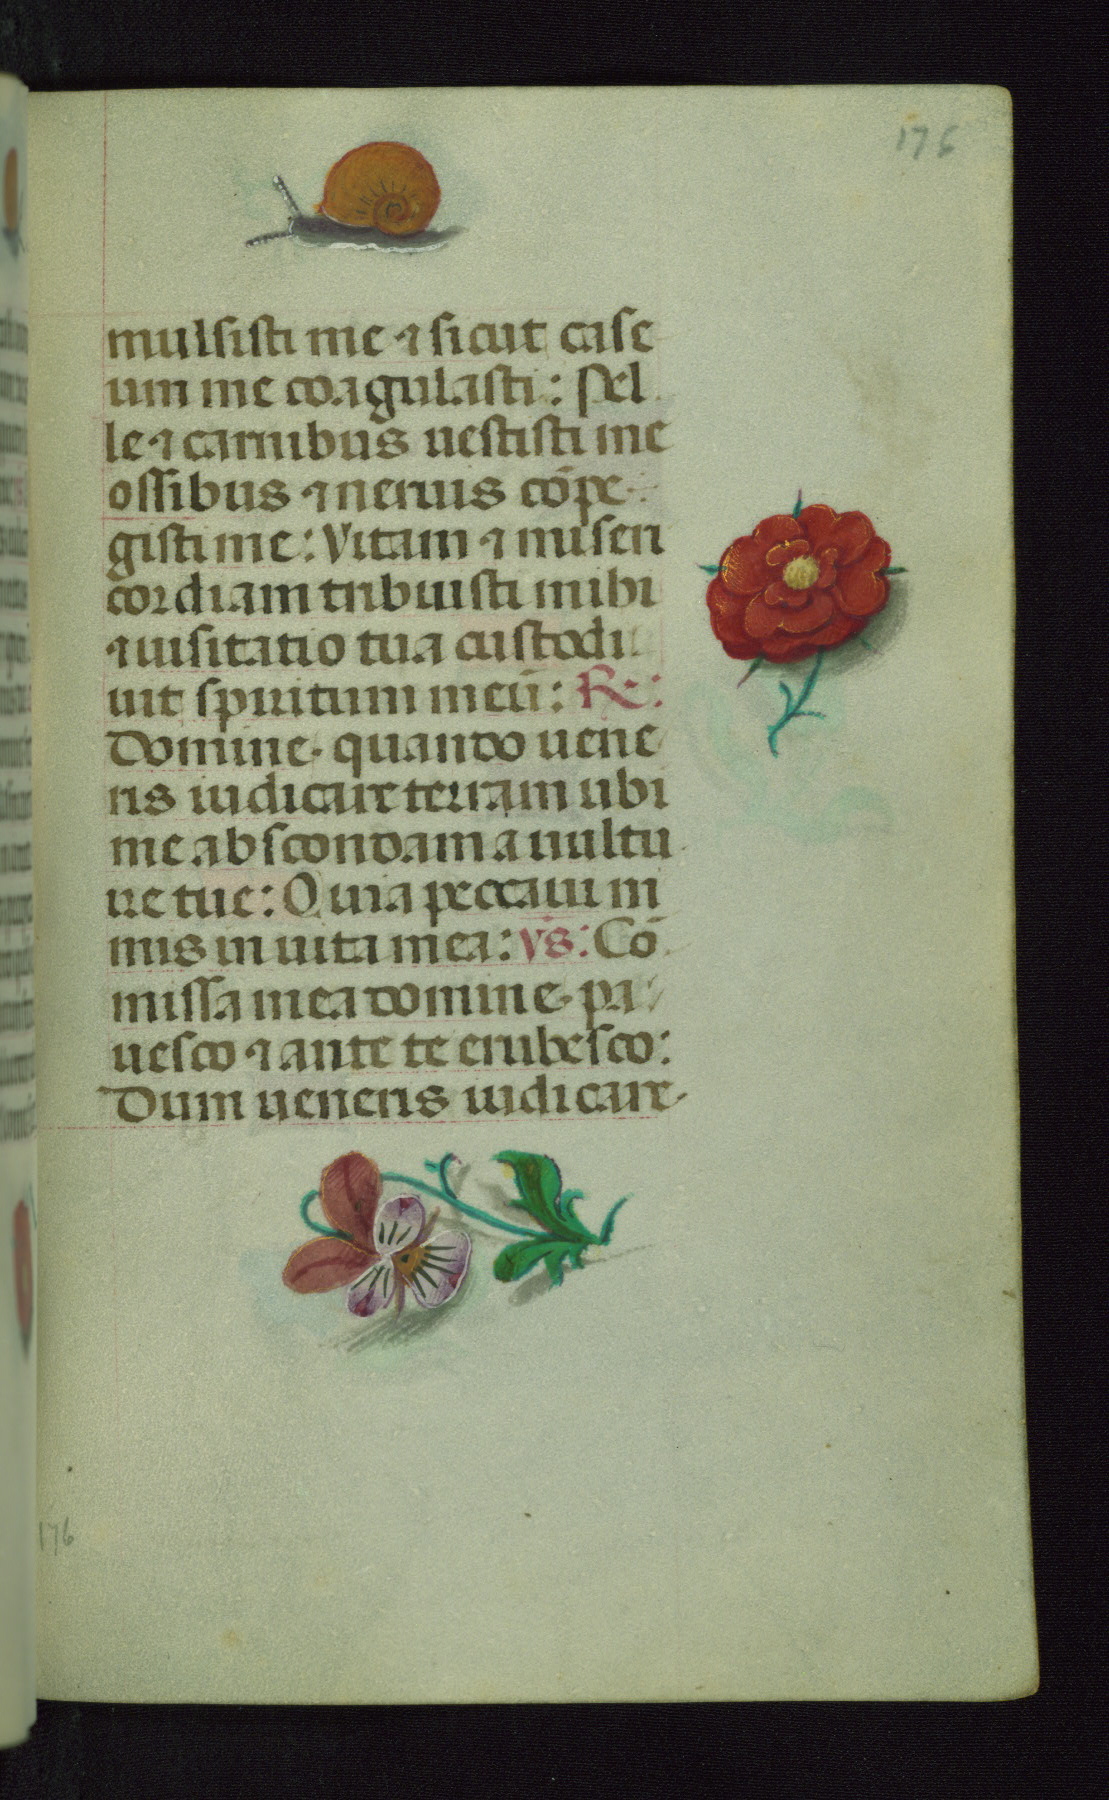 176
mulsisti me ⁊ sicut case
um me coagulasti: Pel
le ⁊ carnibus uestisti me
ossibus ⁊ neruis cōpe
gisti me: Vitam ⁊ miseri
cordiam tribuisti mihi
⁊ uisitatio tua custodi
uit spiritum meū: Re:
Domine quando uene
ris iudicare terram ubi
me abscondam a uultu
ire tue: Quia peccaui ni
mis in uita mea: vs: Cō
missa mea domine pa
uesco ⁊ ante te erubesco:
Dum ueneris iudicare
176